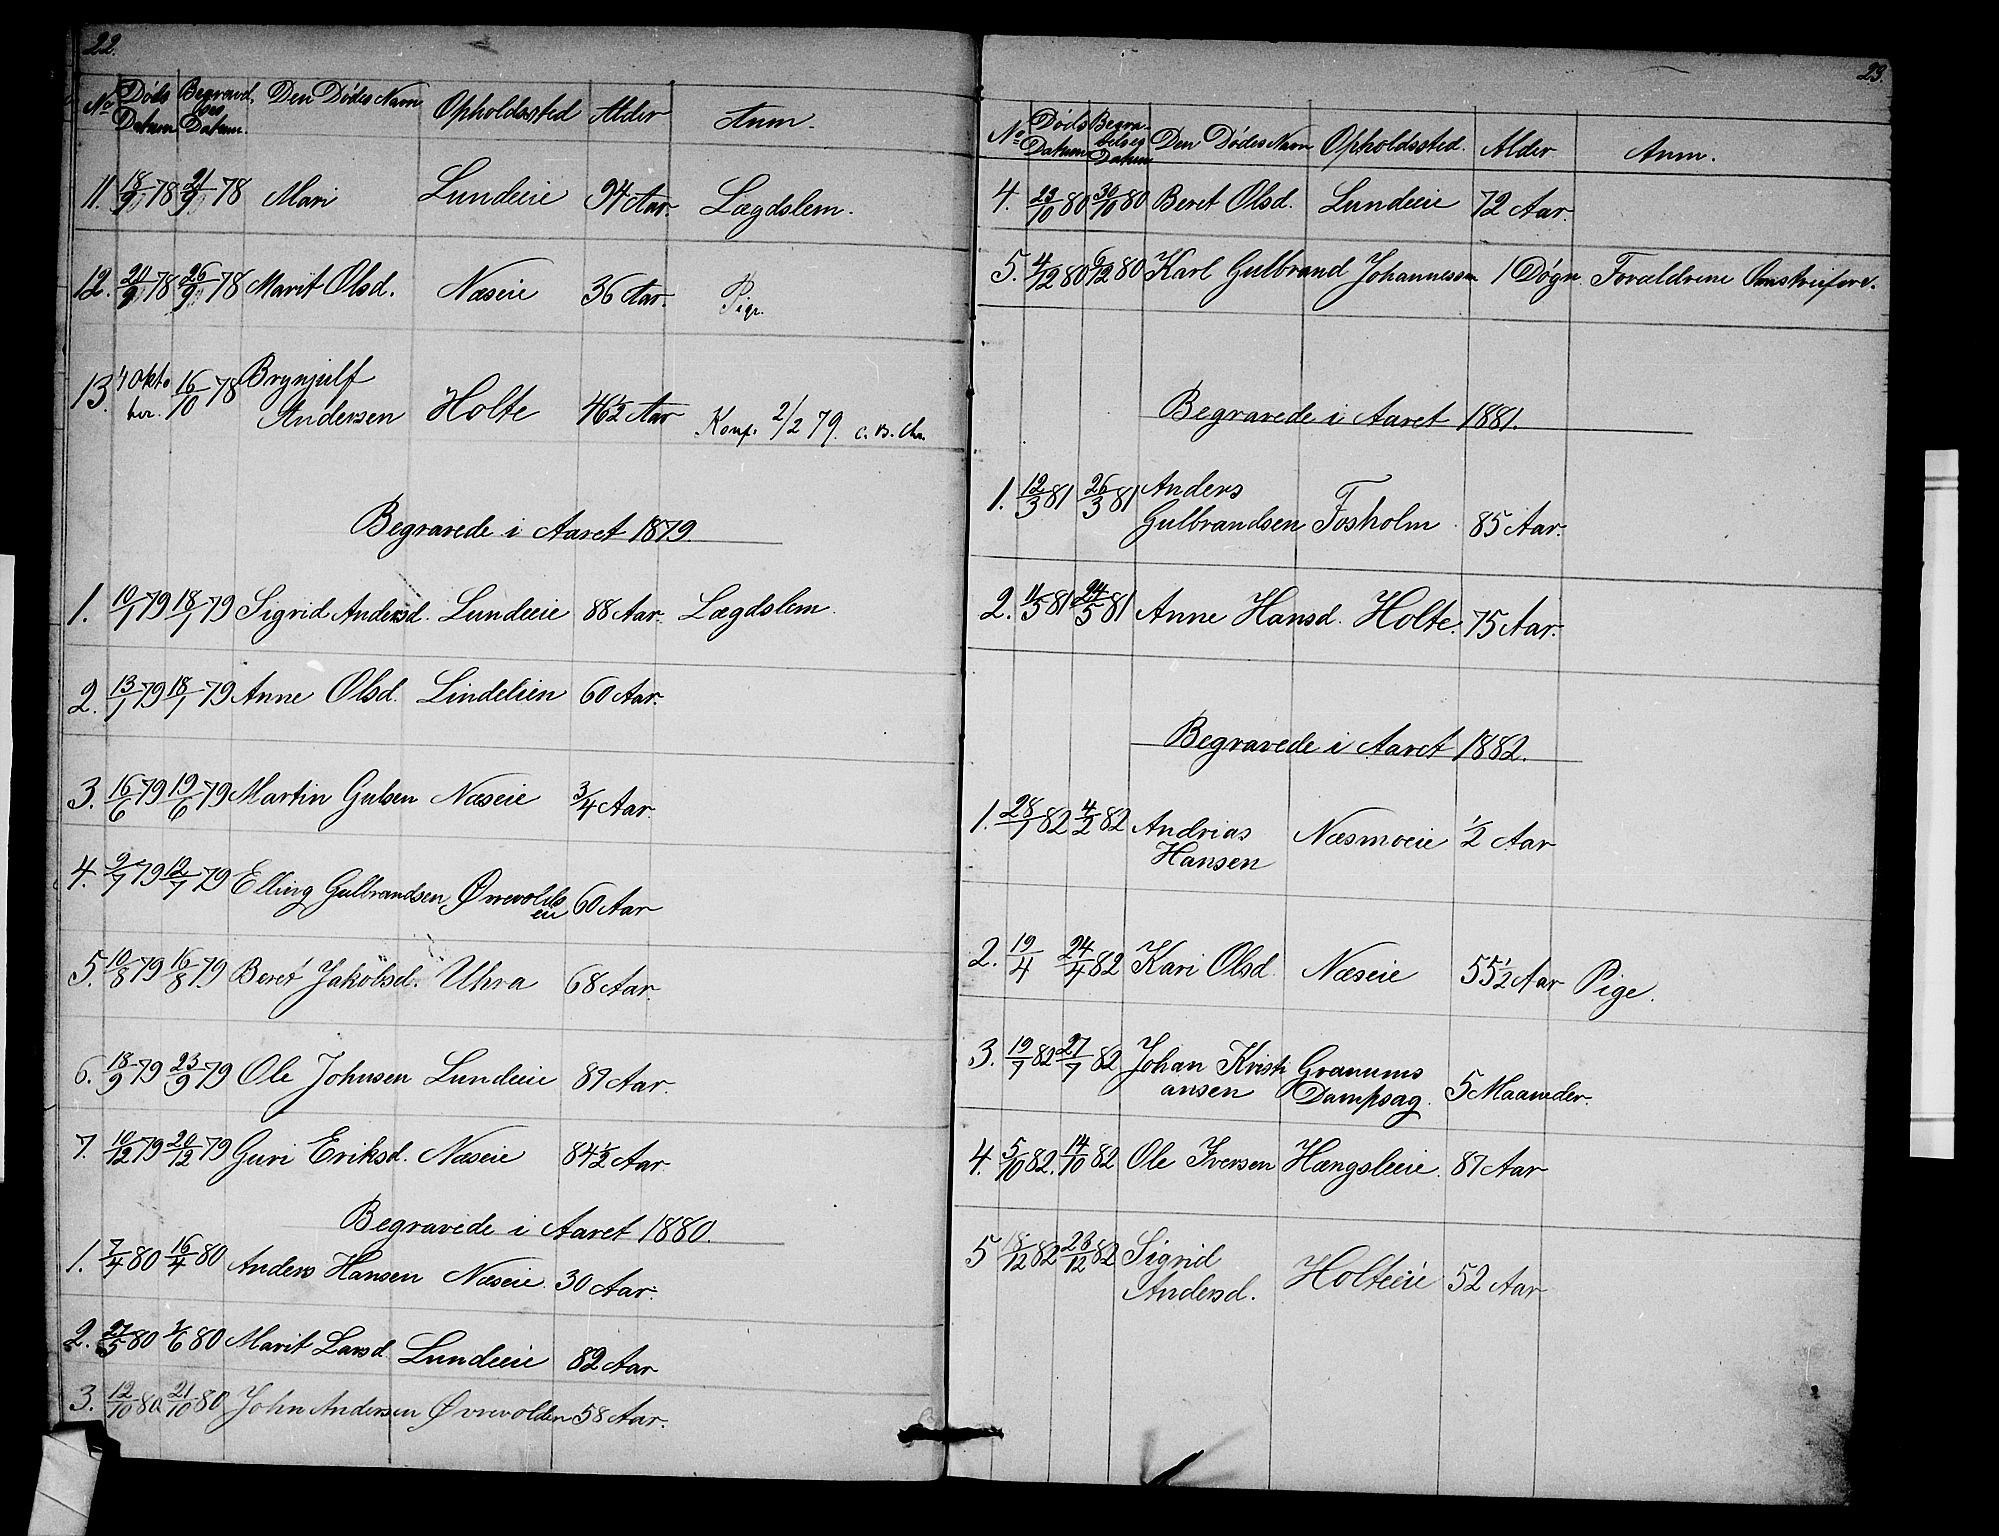 22.
No Døds Datum Begravelses Datum. Den Dødes Navn Opholdssted Alder Anm.
11. 18/9 78 21/9 78 Mari Lundeeie 94 Aar. Lægdslem.
12. 20/9 78 26/9 78 Marit Olsd. Næseie 36 Aar. Pige.
13. 4 Okto
ber. 16/10 78 Brynjulf
Andersen Holte 46 1/2 Aar Konf. 2/2 79.
Begravede i Aaret 1879.
1. 10/1 79 18/1 79 Sigrid Andersd. Lundeeie 88 Aar. Lægdslem.
2. 13/1 79 18/1 79 Anne Olsd. Lindelien 60 Aar.
3. 16/6 79 19/6 79 Martin Gulsen Næseie 3/4 Aar.
4. 2/7 79 12/7 79 Elling Gulbrandsen Øvrevolds
eie 60 Aar
5. 10/8 79 16/8 79 Beret Jakobsd. Uhra 68 Aar.
6. 18/9 79 23/9 79 Ole Johnsen Lundeeie 87 Aar.
7. 10/12 79 20/12 79 Guri Eriksd. Næseie 84 1/2 Aar.
Begravede i Aaret 1880.
1. 7/4 80 16/4 80 Anders Hansen Næseie 30 Aar.
2. 27/5 80 2/6 80 Marit Larsd. Lundeeie 82 Aar
3. 12/10 80 21/10 80 John Andersen Øvrevolden 58 Aar.
23.
No Døds Datum Begravelses Datum Den Dødes Navn Opholdssted. Alder Anm.
4. 23/10 80 30/10 80 Beret Olsd. Lundeeie 72 Aar
5. 4/12 80 6/12 80 Karl Gulbrand Johannessen 1 Døgn. Forældrene Omstreifere.
Begravede i Aaret 1881.
1. 12/3 81 26/3 81 Anders
Gulbrandsen Fosholm 85 Aar.
2. 11/5 81 24/5 81 Anne Hansd. Holte. 75 Aar.
Begravede i Aaret 1882.
1. 28/1 82 4/2 82 Andrias
Hansen Næsmoeie 1/2 Aar
2. 19/4 24/4 82 Kari Olsd. Næseie 55 1/2 Aar Pige.
3. 19/7 82 27/7 82 Johan Kristi
ansen Granums
Dampsag. 5 Maaneder.
4. 5/10 82. 14/10 82 Ole Iversen Hængsleeie. 87 Aar
5 18/12 82 23/12 82 Sigrid
Andersd. Holteeie 52 Aar